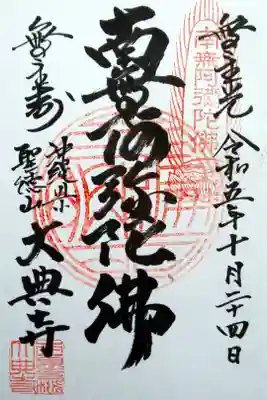 無量光 令和五年十月二十四日
南無阿弥陀佛
南無阿弥陀佛
無量寿
沖縄県
聖徳山
大典寺